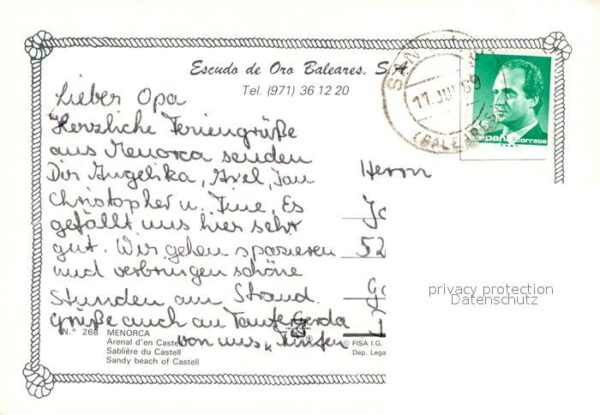 Escudo de Oro Baleares. S.A.
Tel. (971) 36 12 20
Lieber Opa
Herzliche Feriengrüße
aus Menorca senden
Dir Angelika, Axel, Jan
Christopher u. Tine. Es
gefällt uns hier sehr
gut. Wir gehen spazieren
und verbringen schöne
Stunden am Strand.
Grüße auch an Tante Gerda
von uns
Herrn
52
N.º 268 MENORCA
Arenal d'en Castell
Sablière du Castell
Sandy beach of Castell
© FISA I.G.
Dep. Lega
17 JUL 89
(BALEARES)
España correos
privacy protection
Datenschutz